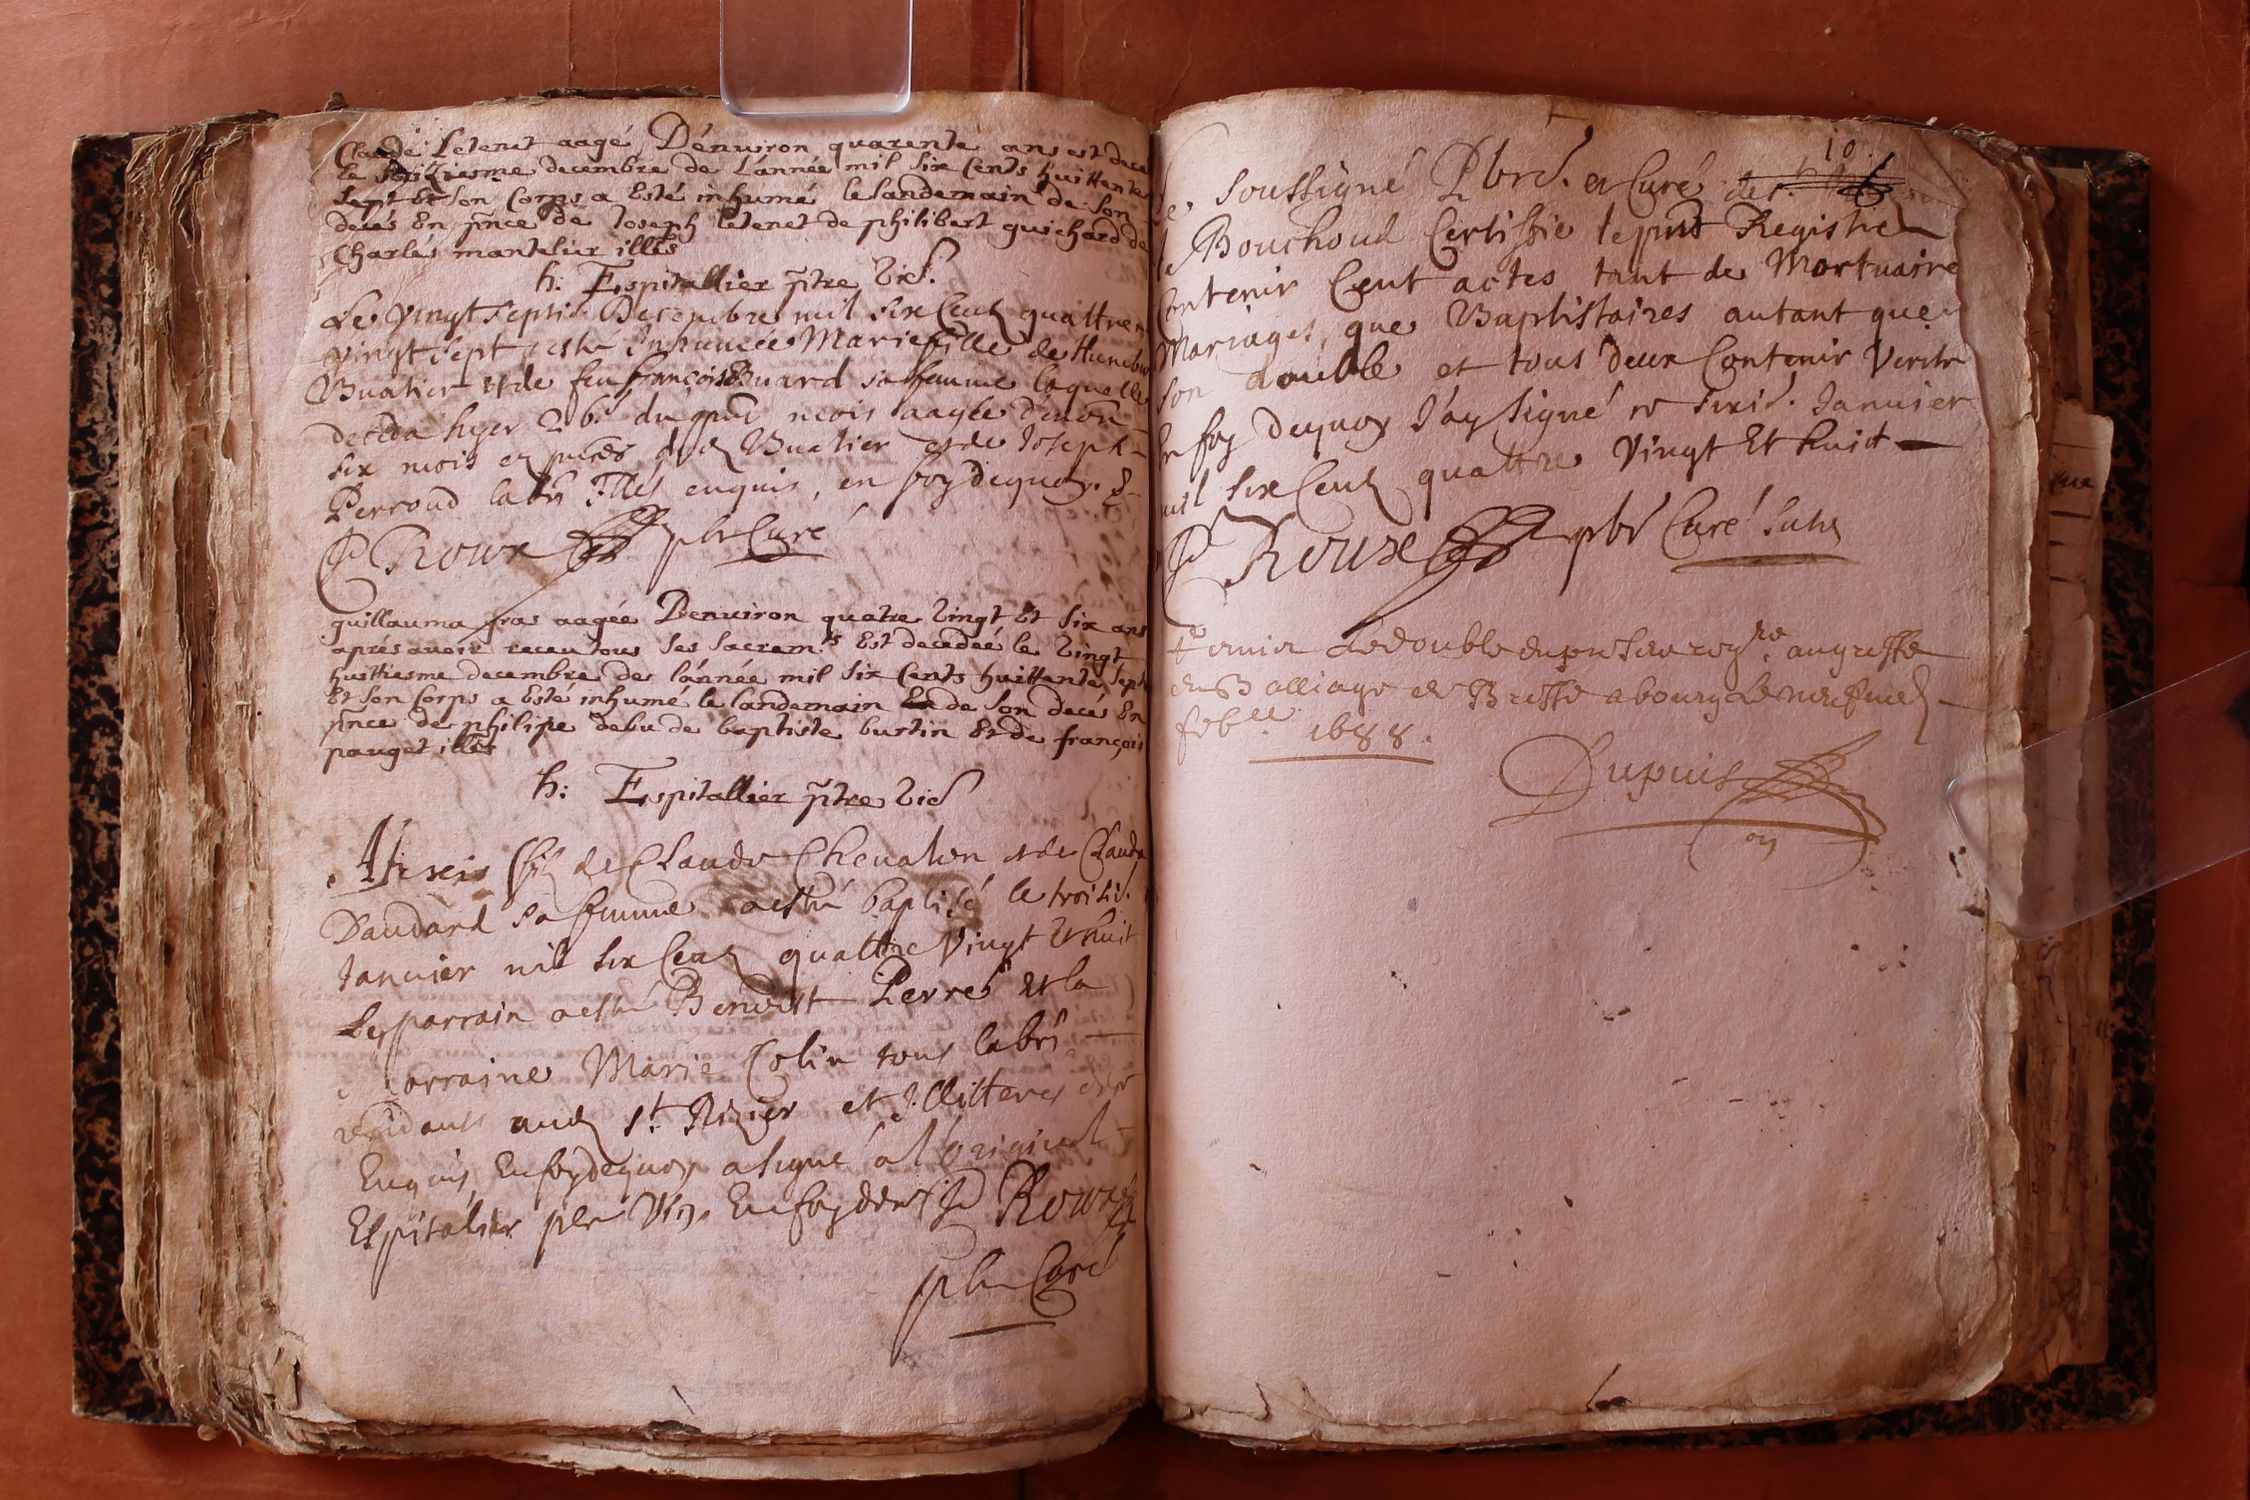 Claude Letenet aagé Dénuiron quarente ans est dece
le decembre de L'année mil six Cents huittente
sept Et son Corps a Esté inhumé le landemain de son
decés En pñce de Joseph letenet de philibert guichard de
Charles mantelier illés
h: Espitallier p̃tre vic.
Le vingt septi.e Decembre mil six Cent quattre
vingt sept a esté Inhumée Marie fille de Humber
Buatier et de feu françoise Buard sa femme laquelle
deceda hyer 26.e du pnt mois aagée d'envon
six mois en pnces dud Buatier et de Joseph
Perroud labrs Illés enquis, en foy dequoy. S
Jd Roux pbr Curé
guillauma fras aagée Denuiron quatre vingt Et six ans
aprés auoir receu tous ses sacrem.ts Est decedée le vingt
huittiesme decembre de lánnée mil six Cents huittente sept
Et son Corps a Esté inhumé le landemain de son decés En
pñce de philipe debu de baptiste burtin Et de françois
pauget illés
h: Espitallier p̃tre vic
filz de Claude Cheualier et de Claud
Daudard sa femme a esté baptisé le troisi.e
Januier mil six Cent quattre vingt et huit
Le parrain a esté Benoist Perret Et la
marraine Marie Colin tous labrs
residants aud St. Rizier et Illitteres
Enquis, En foy dequoy a signé a l'original
Espitalier pbr vic. En foy Jd Roux
pbr Curé
10
Je soussigné Pbre. et Curé
de Bouchoud Certiffie le pnt Registre
Contenir Cent actes tant de Mortuaire
Mariages, que Baptistaires autant que
son double et tous deux Contenir verite
En foy dequoy J'ay signé ce sixi.e Januier
mil six Cent quattre vingt Et huit
Jd Roux pbr Curé susd
remis le double du present reg.re au greffe
du Balliage de Bresse a bourg Le neufuie
feb.er 1688.
Dupuis